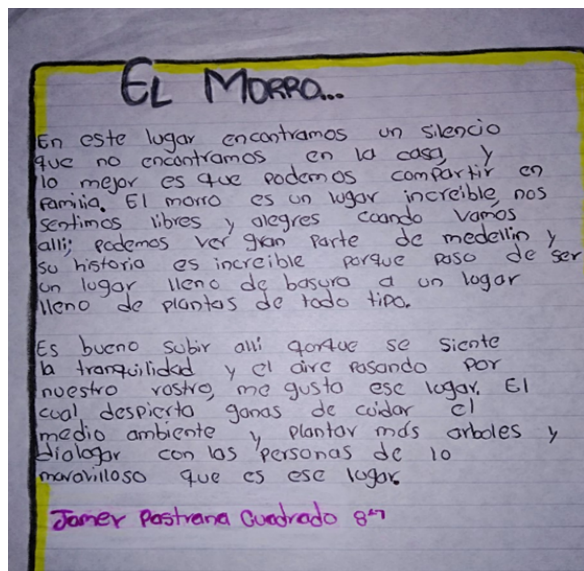 EL MORRO...
En este lugar encontramos un silencio
que no encontramos en la casa, y
lo mejor es que podemos compartir en
familia. El morro es un lugar increible, nos
sentimos libres y alegres cuando vamos
alli; podemos ver gran parte de medellin y
su historia es increible porque paso de ser
un lugar lleno de basura a un lugar
lleno de plantas de todo tipo.
Es bueno subir alli porque se siente
la tranquilidad y el aire pasando por
nuestro rostro, me gusta ese lugar. El
cual despierta ganas de cuidar el
medio ambiente y plantar más arboles y
dialogar con las personas de lo
maravilloso que es ese lugar.
Jamer Pastrana Cuadrado 8°7